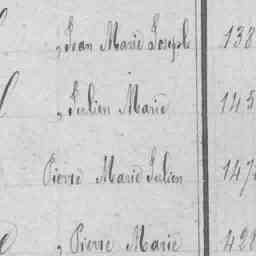 , Jean Marie Joseph 138
, Julien Marie 145
Pierre Marie Julien 147
, Pierre Marie 428